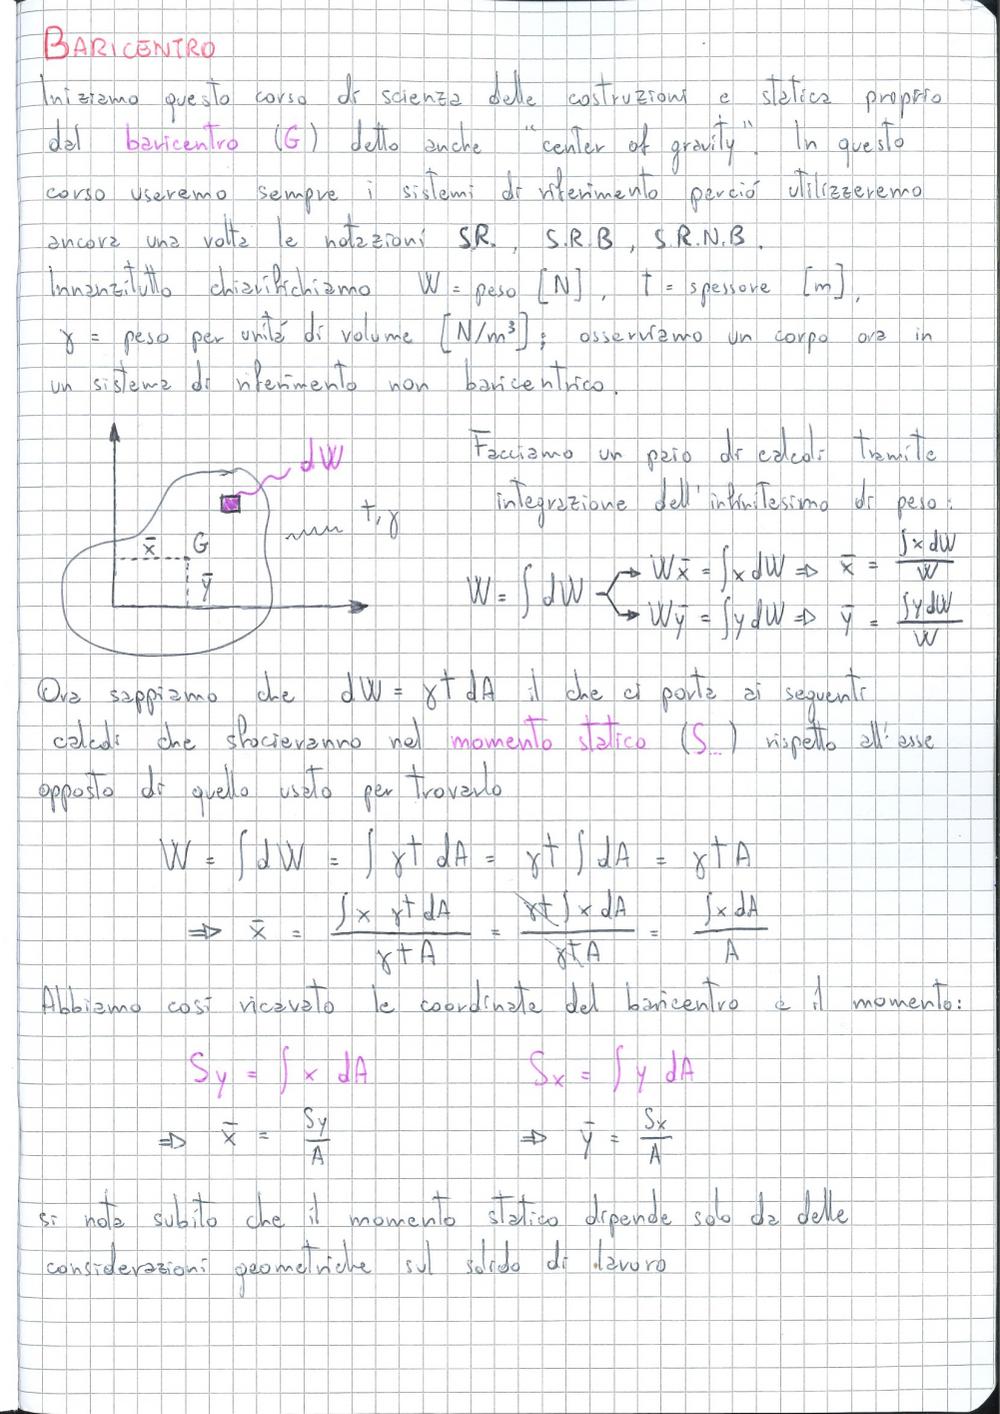 BARICENTRO
Iniziamo questo corso di scienza delle costruzioni e statica proprio
dal baricentro (G) detto anche "center of gravity". In questo
corso useremo sempre i sistemi di riferimento perció utilizzeremo
ancora una volta le notazioni S.R., S.R.B, S.R.N.B.
Innanzitutto chiarifichiamo W = peso [N], t = spessore [m],
γ = peso per unitá di volume [N/m³]; osserviamo un corpo ora in
un sistema di riferimento non baricentrico.
dW
t, γ
x̄ G
ȳ
Facciamo un paio di calcoli tramite
integrazione dell'infinitesimo di peso:
W = ∫dW
Wx̄ = ∫x dW ⇒ x̄ = ∫x dW / W
Wȳ = ∫y dW ⇒ ȳ = ∫y dW / W
Ora sappiamo che dW = γt dA il che ci porta ai seguenti
calcoli che sfocieranno nel momento statico (S...) rispetto all'asse
opposto di quello usato per trovarlo
W = ∫dW = ∫γt dA = γt ∫dA = γtA
⇒ x̄ = ∫x γt dA / γtA = γt ∫x dA / γtA = ∫x dA / A
Abbiamo cosí ricavato le coordinate del baricentro e il momento:
Sy = ∫x dA Sx = ∫y dA
⇒ x̄ = Sy / A ⇒ ȳ = Sx / A
si nota subito che il momento statico dipende solo da delle
considerazioni geometriche sul solido di lavoro